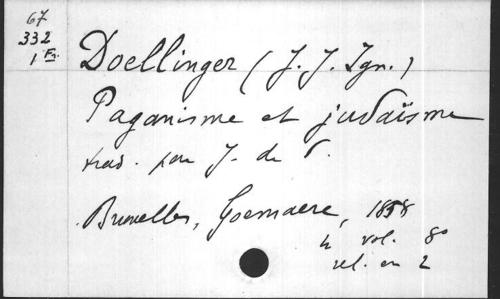 67
332
1 Fr.
Doellinger (J. J. Ign.)
Paganisme et judaïsme
trad. par J. de V.
Bruxelles, Goemaere, 1858
4 vol. 8º
rel. en 2